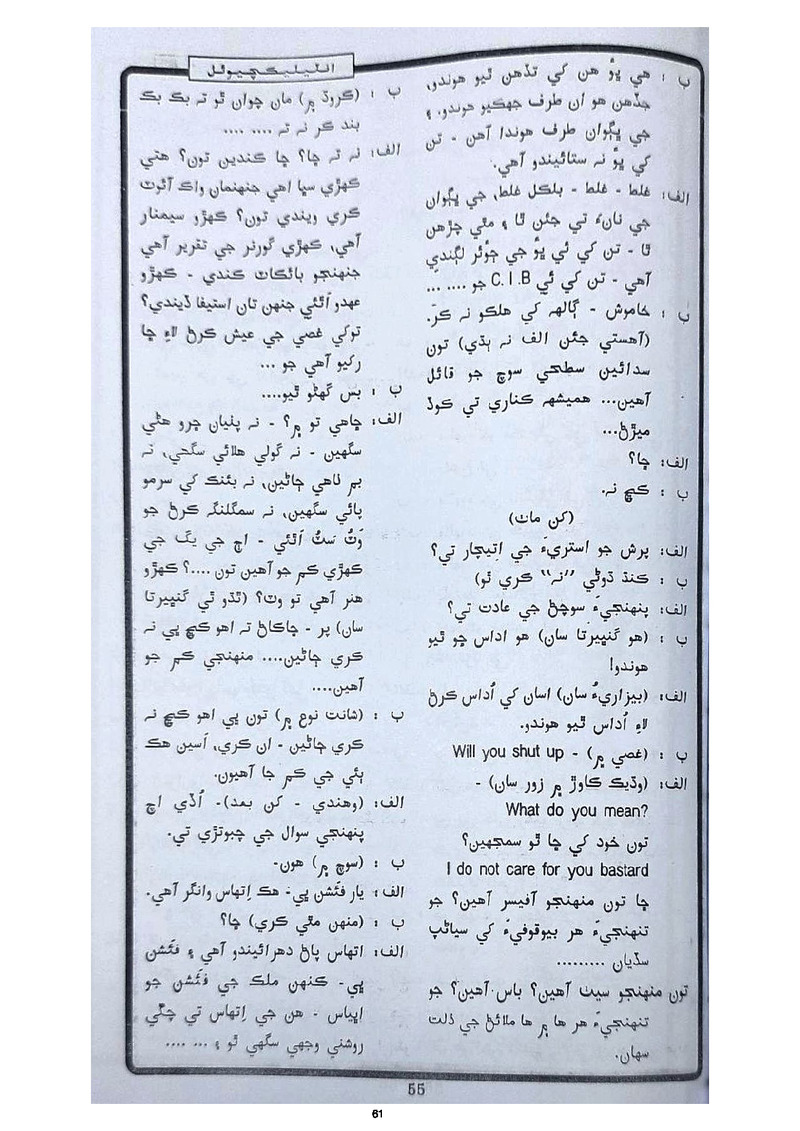 انٽيليڪچيوئل
ب : هي ڀؤ هن کي تڏهن ٿيو هوندو،
جڏهن هو ان طرف جهڪيو هوندو. ۽
جي ڀڳوان طرف هوندا آهن - تن
کي ڀؤ نہ ستائيندو آهي.
الف: غلط - غلط - بلڪل غلط، جي ڀڳوان
جي نانءَ تي جئن ٿا ۽ مٿي چڙهن
ٿا - تن کي ئي ڀؤ جي جوُئر لڳندي
آهي - تن کي ئي C.I.B جو .... ...
ب : خاموش - ڳالهہ کي هلڪو نہ ڪر.
(آهستي جئن الف نہ ٻڌي) تون
سدائين سطحي سوچ جو قائل
آهين... هميشهہ ڪناري تي ڪوڏ
ميڙڻ...
الف: ڇا؟
ب : ڪڇ نہ.
(کن مات)
الف: پرش جو استريءَ جي اِتيچار تي؟
ب : ڪنڌ ڌوڻي ”نہ“ ڪري ٿو)
الف: پنهنجيءَ سوچڻ جي عادت تي؟
ب : (هو گنڀيرتا سان) هو اداس ڇو ٿيو
هوندو!
الف: (بيزاريءَ سان) اسان کي اُداس ڪرڻ
لاءِ اُداس ٿيو هوندو.
ب : (غصي ۾) - Will you shut up
الف: (وڌيڪ ڪاوڙ ۾ زور سان) -
What do you mean?
تون خود کي ڇا ٿو سمجهين؟
I do not care for you bastard
ڇا تون منهنجو آفيسر آهين؟ جو
تنهنجيءَ هر بيوقوفيءَ کي سياڻپ
سڏيان .........
تون منهنجو سيٺ آهين؟ باس آهين؟ جو
تنهنجيءَ هر ها ۾ ها ملائڻ جي ذلت
سهان.
ب : (ڪروڌ ۾) مان چوان ٿو تہ بڪ بڪ
بند ڪر نہ تہ .... ....
الف: نہ تہ ڇا؟ ڇا ڪندين تون؟ هتي
ڪهڙي سڀا اهي جنهنمان واڪ آئوٽ
ڪري ويندي تون؟ ڪهڙو سيمنار
آهي، ڪهڙي گورنر جي تقرير آهي
جنهنجو بائڪاٽ ڪندي - ڪهڙو
عهدو اَٿئي جنهن تان استيفا ڏيندي؟
توکي غصي جي عيش ڪرڻ لاءِ ڇا
رکيو آهي جو ...
ب : بس گهڻو ٿيو....
الف: ڇاهي تو ۾؟ - نہ پٺيان ڇرو هڻي
سگهين - نہ گولي هلائي سگهي، نہ
بم ٺاهي ڄاڻين، نہ بئنڪ کي سرمو
پائي سگهين، نہ سمگلنگہ ڪرڻ جو
وَٽُ سَٽُ اَٿئي - اڄ جي يگ جي
ڪهڙي ڪم جو آهين تون ....؟ ڪهڙو
هنر آهي تو وٽ؟ (ٿڌو ٿي گنڀيرتا
سان) پر - ڇاڪاڻ تہ اهو ڪڇ ڀي نہ
ڪري ڄاڻين.... منهنجي ڪم جو
آهين....
ب : (شانت نوع ۾) تون ڀي اهو ڪڇ نہ
ڪري ڄاڻين - ان ڪري، اَسين هڪ
ٻئي جي ڪم جا آهيون.
الف: (وهندي - کن بعد)- اُڏي اڄ
پنهنجي سوال جي چبوتري تي.
ب : (سوچ ۾) هون-
الف: يار فئشن ڀي- هڪ اِتهاس وانگر آهي.
ب : (منهن مٿي ڪري) ڇا؟
الف: اتهاس پاڻ دهرائيندو آهي ۽ فئشن
ڀي- ڪنهن ملڪ جي فئشن جو
اڀياس - هن جي اِتهاس تي چڱي
روشني وجهي سگهي ٿو ۽ ... ....
55
61